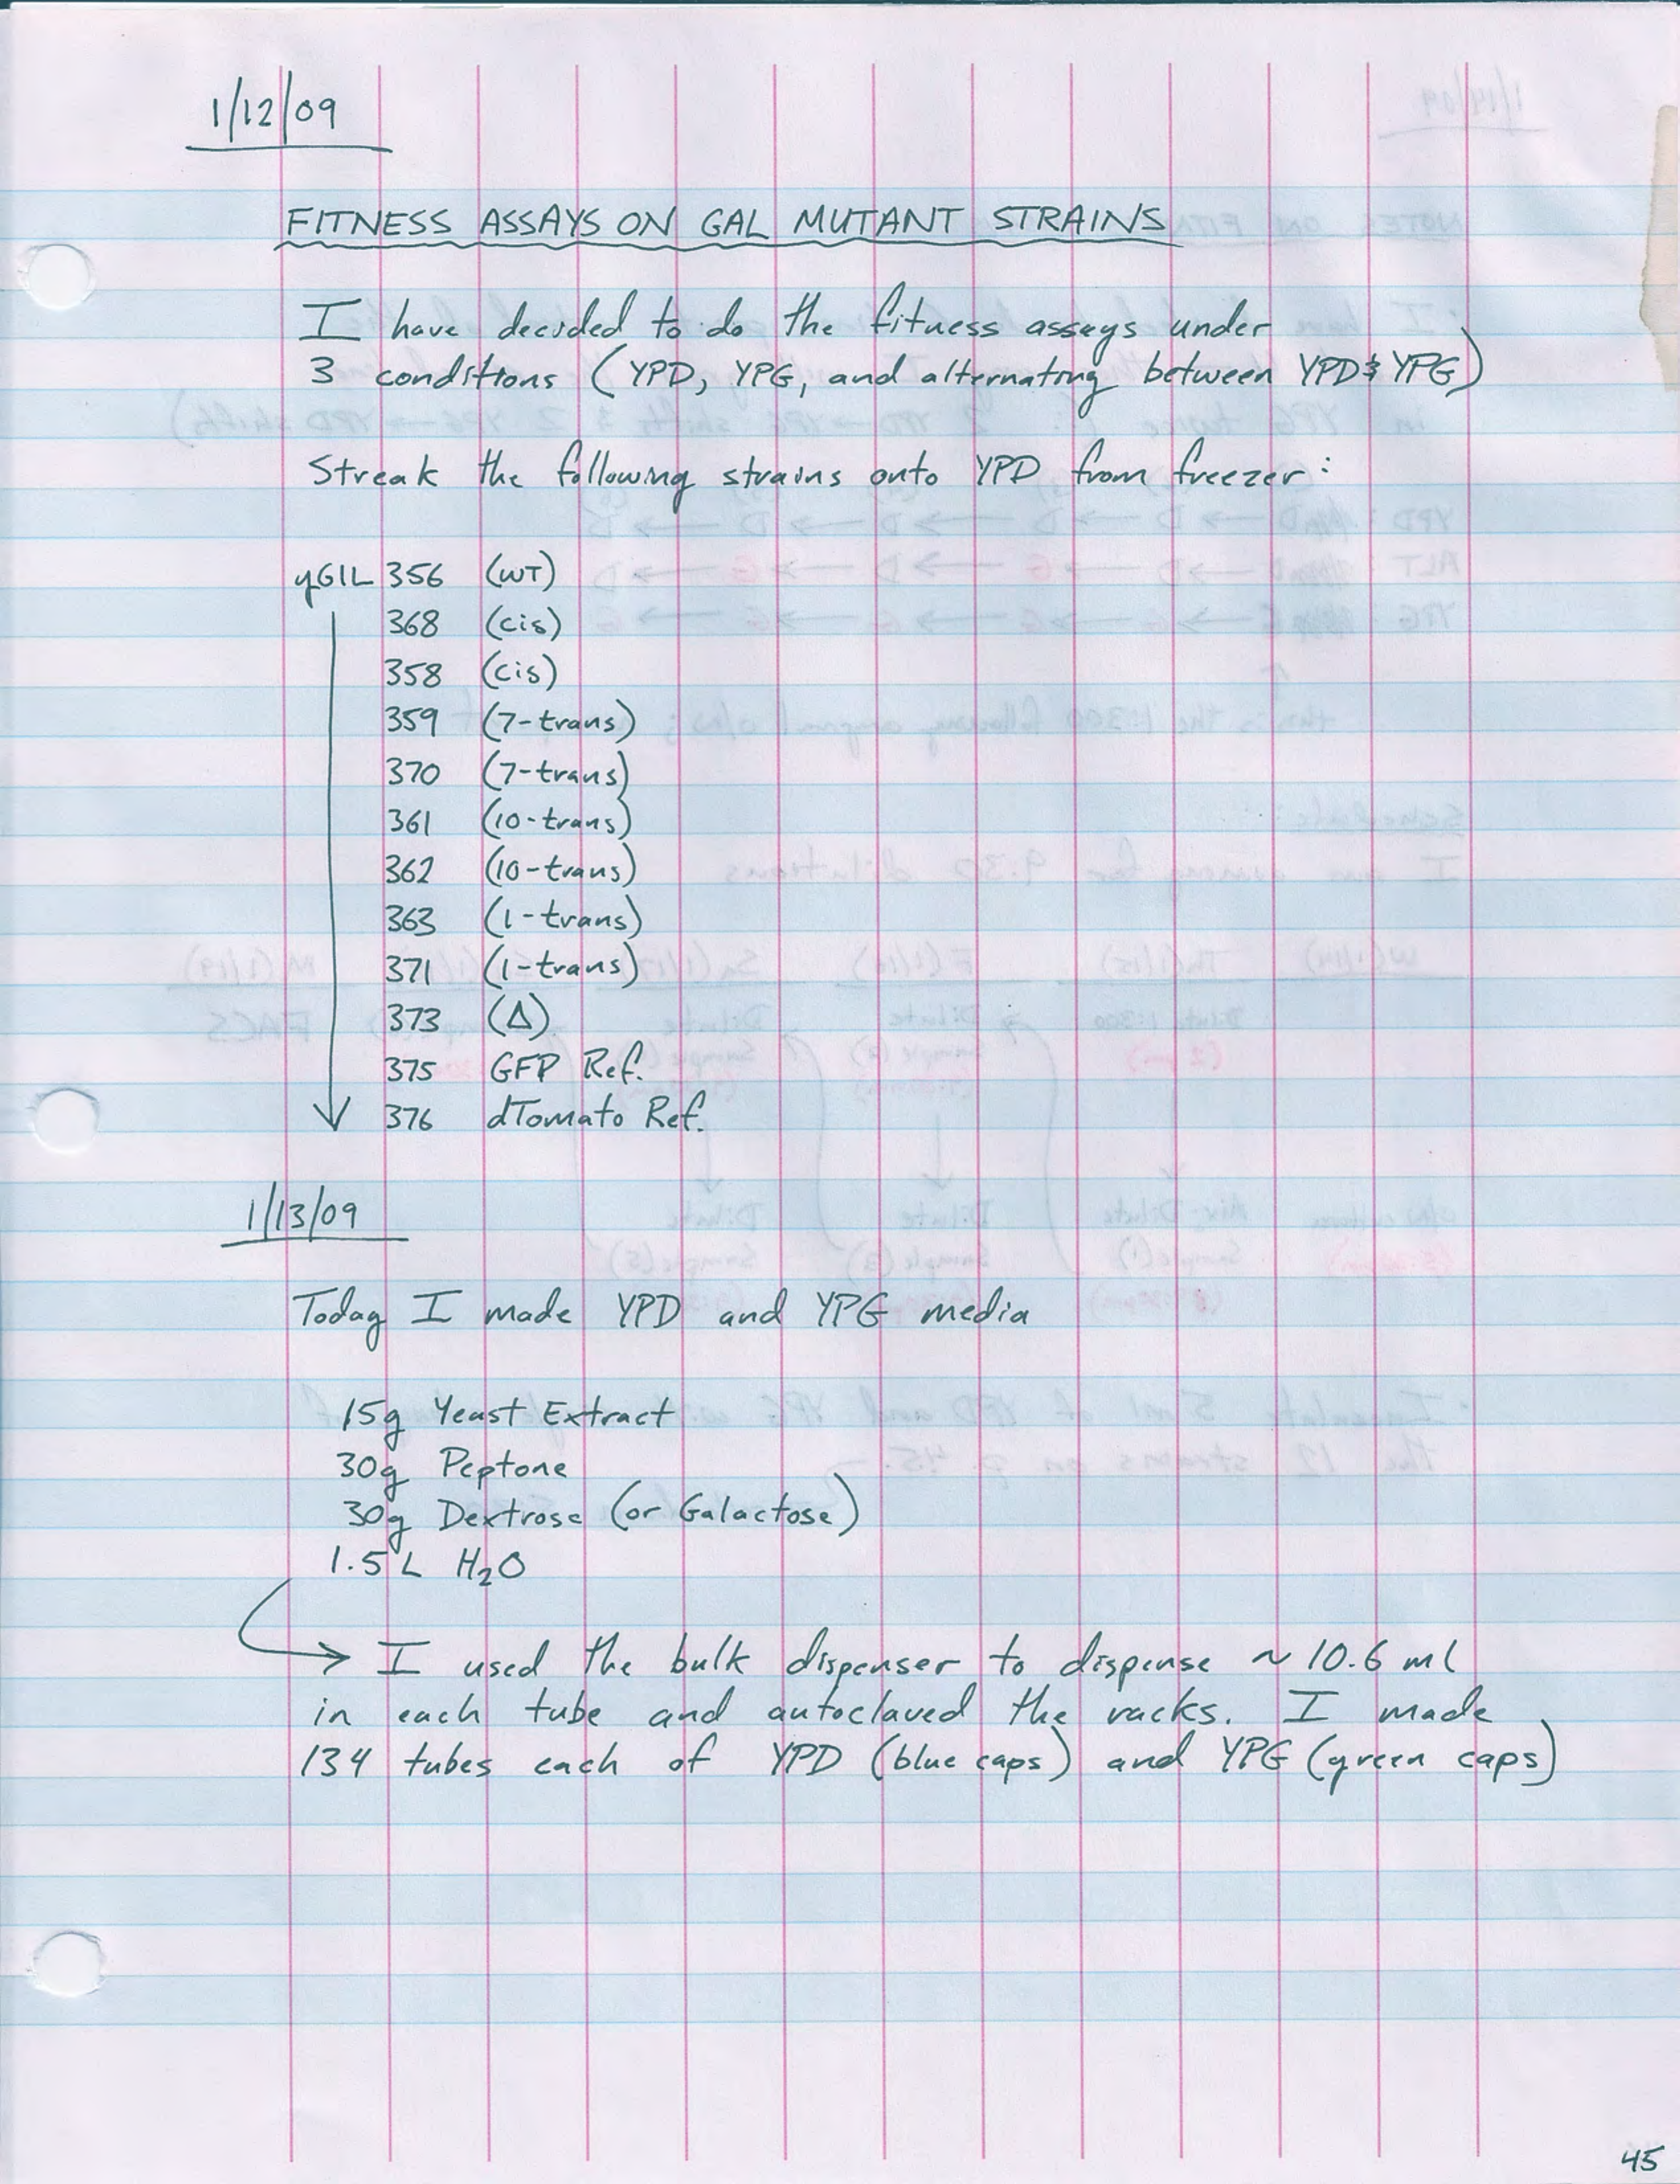 1/12/09
FITNESS ASSAYS ON GAL MUTANT STRAINS
I have decided to do the fitness assays under
3 conditions (YPD, YPG, and alternating between YPD & YPG)
Streak the following strains onto YPD from freezer:
yGIL 356 (WT)
368 (cis)
358 (cis)
359 (7-trans)
370 (7-trans)
361 (10-trans)
362 (10-trans)
363 (1-trans)
371 (1-trans)
373 (Δ)
375 GFP Ref.
376 dTomato Ref.
1/13/09
Today I made YPD and YPG media
15g Yeast Extract
30g Peptone
30g Dextrose (or Galactose)
1.5 L H₂O
→ I used the bulk dispenser to dispense ~10.6 ml
in each tube and autoclaved the racks. I made
134 tubes each of YPD (blue caps) and YPG (green caps)
45